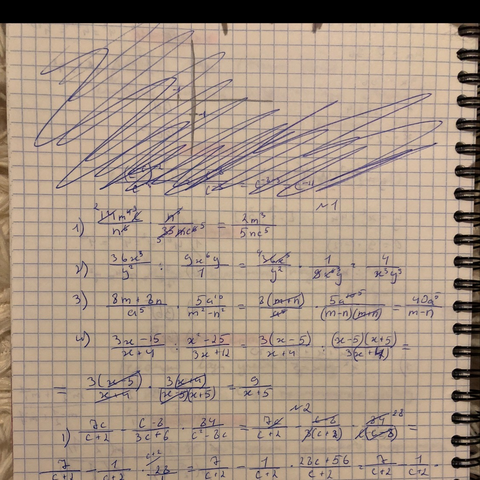 №1
1) 14m⁴c/n⁶ · n⁵/35mc⁶ = 2m³/5nc⁵
2) 36x³/y² : 9x⁶y/1 = 36x³/y² · 1/9x⁶y = 4/x³y³
3) 8m+8n/a⁵ · 5a¹⁰/m²-n² = 8(m+n)/a⁵ · 5a¹⁰/(m-n)(m+n) = 40a⁵/m-n
4) 3x-15/x+4 : x²-25/3x+12 = 3(x-5)/x+4 : (x-5)(x+5)/3(x+4) =
= 3(x-5)/x+4 · 3(x+4)/(x-5)(x+5) = 9/x+5
№2
1) 7c/c+2 - c-8/3c+6 · 84/c²-8c = 7c/c+2 - c-8/3(c+2) · 84/c(c-8) =
7/c+2 - 1/c+2 · 28/ = 7/c+2 - 1/c+2 · 28c+56 = 7/c+2 - 1/c+2 ·